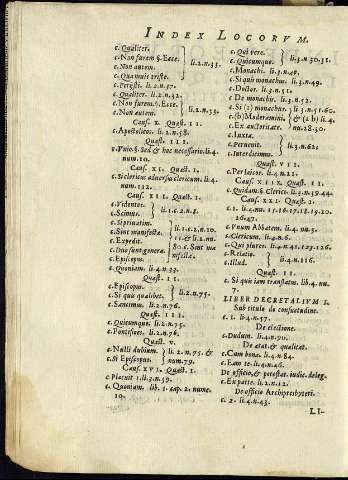 INDEX LOCORVM.
c. Qualiter.
c. Non furem §. Ecce. } li.2.n.35.
c. Non autem.
c. Quamuis triste.
c. Peristi. li.2.n.57.
c. Qualiter. li.2.n.32.
c. Non furem. §. Ecce. } li.2.n.35.
c. Non autem.
Caus. X. Quæst. II.
c. Apostolicos. li.2.n.58.
Quæst. III.
v. Vnio. §. Sed & hoc necessario. li.4.
num.10.
Caus. XI. Quæst. I.
c. Si clericus aduersus clericum. li.4.
num.132.
Caus. XII. Quæst. I.
c. Videntes.
c. Scimus. } li.1.6.2.n.8.
c. Si priuatum.
c. Sint manifestæ. } li.1.6.2.n.10.
c. Expedit. 11 & li.2.nu.
c. Duo sunt genera. 80. c. Sint ma
c. Episcopus. nifestæ.
c. Quoniam. li.4.n.33.
Quæst. II.
c. Episcopus.
c. Si qui qualibet. } li.2.n.75.
c. Sancimus. li.2.n.76.
Quæst. III.
c. Quicumque. li.2.n.75.
c. Pontifices. li.2.n.76.
Quæst. V.
c. Nulli dubium. } li.2.n.75. &
c. Si Episcopus. num.79.
Caus. XVI. Quæst. I.
c. Placuit 1. li.3.n.59.
c. Quoniam. lib.1. cap.2. nume.
10.
c. Qui vere.
c. Quicumque. } li.3.n.30.31.
c. Monachi. li.3.n.48.
c. Si quis monachus. li.3.n.49.
c. Doctor. li.3.n.51.
c. De monachis. li.3.n.52.
c. Si (2) monachus. li.3.n.51.60.
c. (b) Moderamini. } & (2 b) li.4.
c. Ex auctoritate. nu.28.30.
c. Iuxta.
c. Peruenit. } li.3.n.61.
c. Interdicimus.
Quæst. VII.
c. Per laicos. li.4.n.21.
Caus. XIIX. Quæst. I.
c. Quidam. §. Clerico. li.3.n.39.44.
Caus. XXI. Quæst. I.
c. 1. li.4.nu.15.16.17.18.19.20.
26.47.
c. Vnum Abbatem. li.4.nu.5.
c. Clericum. li.4.n.6.
c. Qui plures. li.4.n.41.123.126.
c. Relatio. } li.4.n.116.
c. Illud.
Quæst. II.
c. Si quis iam translatus. lib.4.nu.
7.
LIBER DECRETALIVM I.
Sub titulo de consuetudine.
c. 1. li.4.n.57.
De electione.
c. Dudum. li.4.n.90.
De ætat. & qualitat.
c. Cum bone. li.4.n.84.
c. Eam te. li.4.n.46.
De officio, & potestat. iudic. deleg.
c. Ex parte. li.2.n.12.
De officio Archipresbyteri.
c. 2. li.4.n.43.
LI-